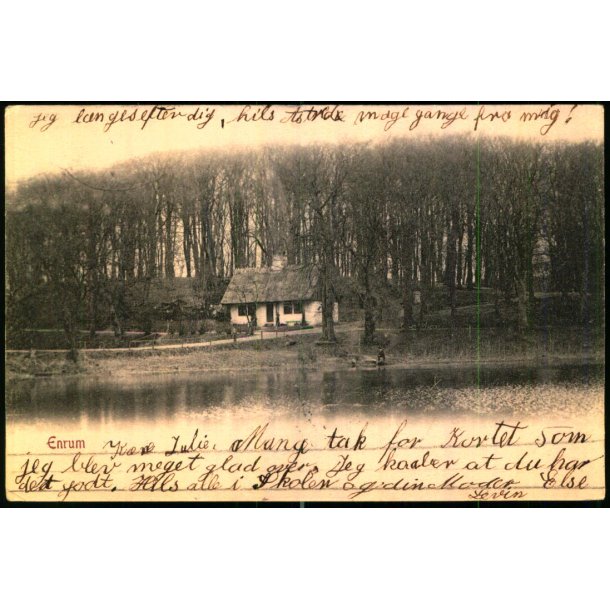 jeg længes efter dig, hils Astrid mage gange fra mig!
Enrum Kære Julie. Mang tak for Kortet som
jeg blev meget glad over. Jeg haaber at du har
det godt. Hils alle i Skolen og din Moder Else
Levin